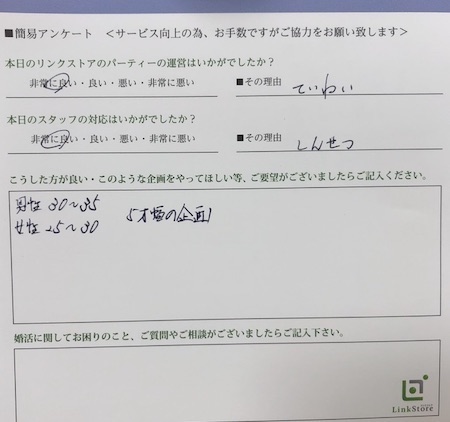 ■簡易アンケート <サービス向上の為、お手数ですがご協力をお願い致します>
本日のリンクストアのパーティーの運営はいかがでしたか?
非常に良い・良い・悪い・非常に悪い ■その理由 ていねい
本日のスタッフの対応はいかがでしたか?
非常に良い・良い・悪い・非常に悪い ■その理由 しんせつ
こうした方が良い・このような企画をやってほしい等、ご要望がございましたらご記入ください。
男性 30~35
女性 25~30 5才幅の企画
婚活に関してお困りのこと、ご質問やご相談がございましたらご記入下さい。
LinkStore